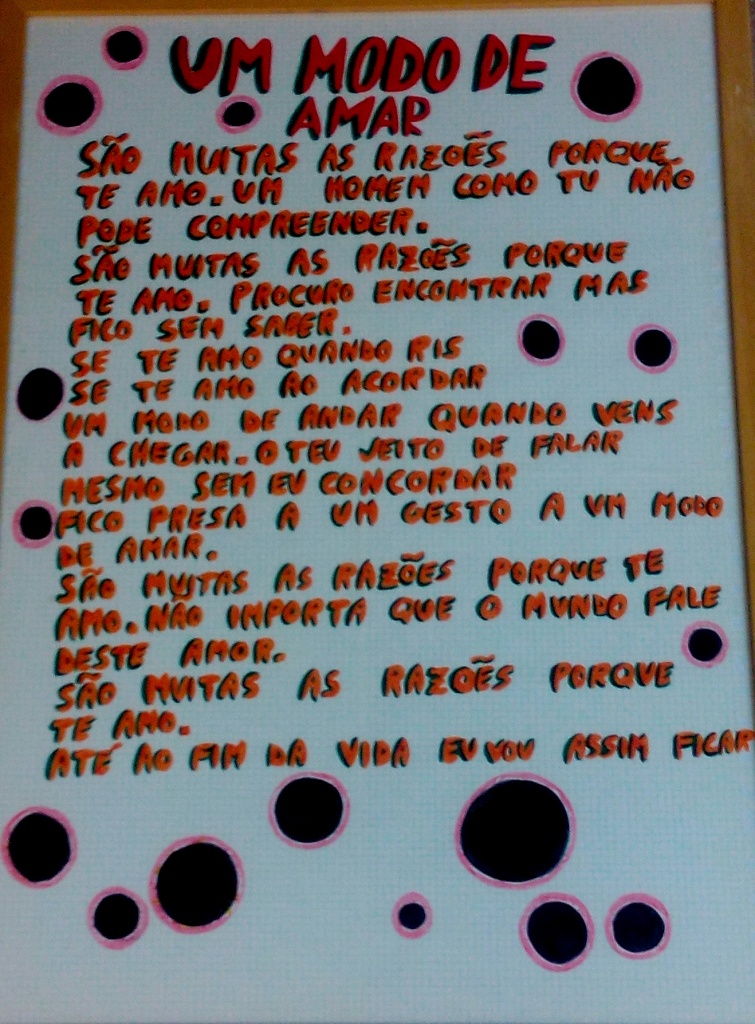 UM MODO DE
AMAR
SÃO MUITAS AS RAZOẼS PORQUE
TE AMO. UM HOMEM COMO TU NÃO
PODE COMPREENDER.
SÃO MUITAS AS RAZOẼS PORQUE
TE AMO. PROCURO ENCONTRAR MAS
FICO SEM SABER.
SE TE AMO QUANDO RIS
SE TE AMO AO ACORDAR
UM MODO DE ANDAR QUANDO VENS
A CHEGAR. O TEU JEITO DE FALAR
MESMO SEM EU CONCORDAR
FICO PRESA A UM GESTO A UM MODO
DE AMAR.
SÃO MUITAS AS RAZÕES PORQUE TE
AMO. NÃO IMPORTA QUE O MUNDO FALE
DESTE AMOR.
SÃO MUITAS AS RAZOẼS PORQUE
TE AMO.
ATÉ AO FIM DA VIDA EU VOU ASSIM FICAR